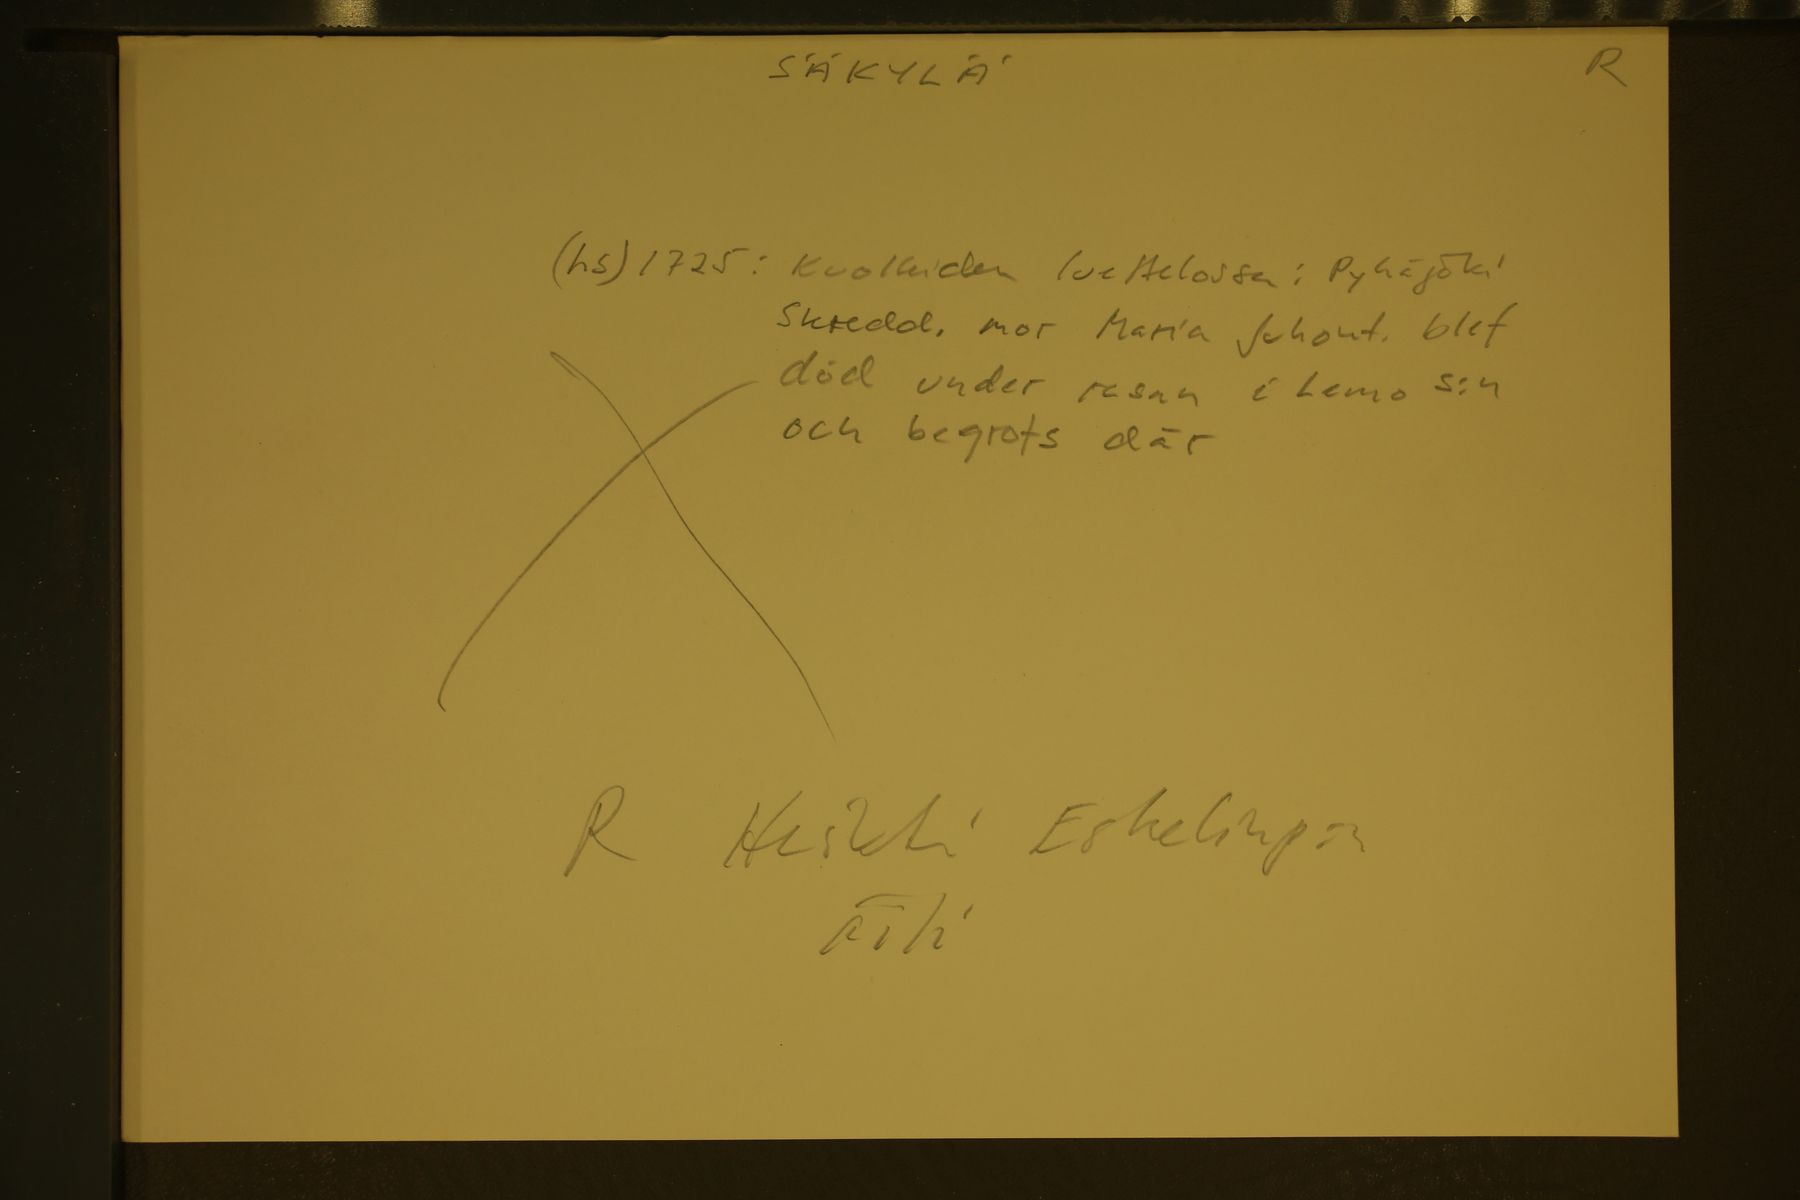 SÄKYLÄ R
(hs) 1725: Kuolleiden luettelossa: Pyhäjoki
Skredd. mor Maria Johont. blef
död under resan i Lemo S:n
och begrofs där
R Heikki Eskelinp:n
äiti